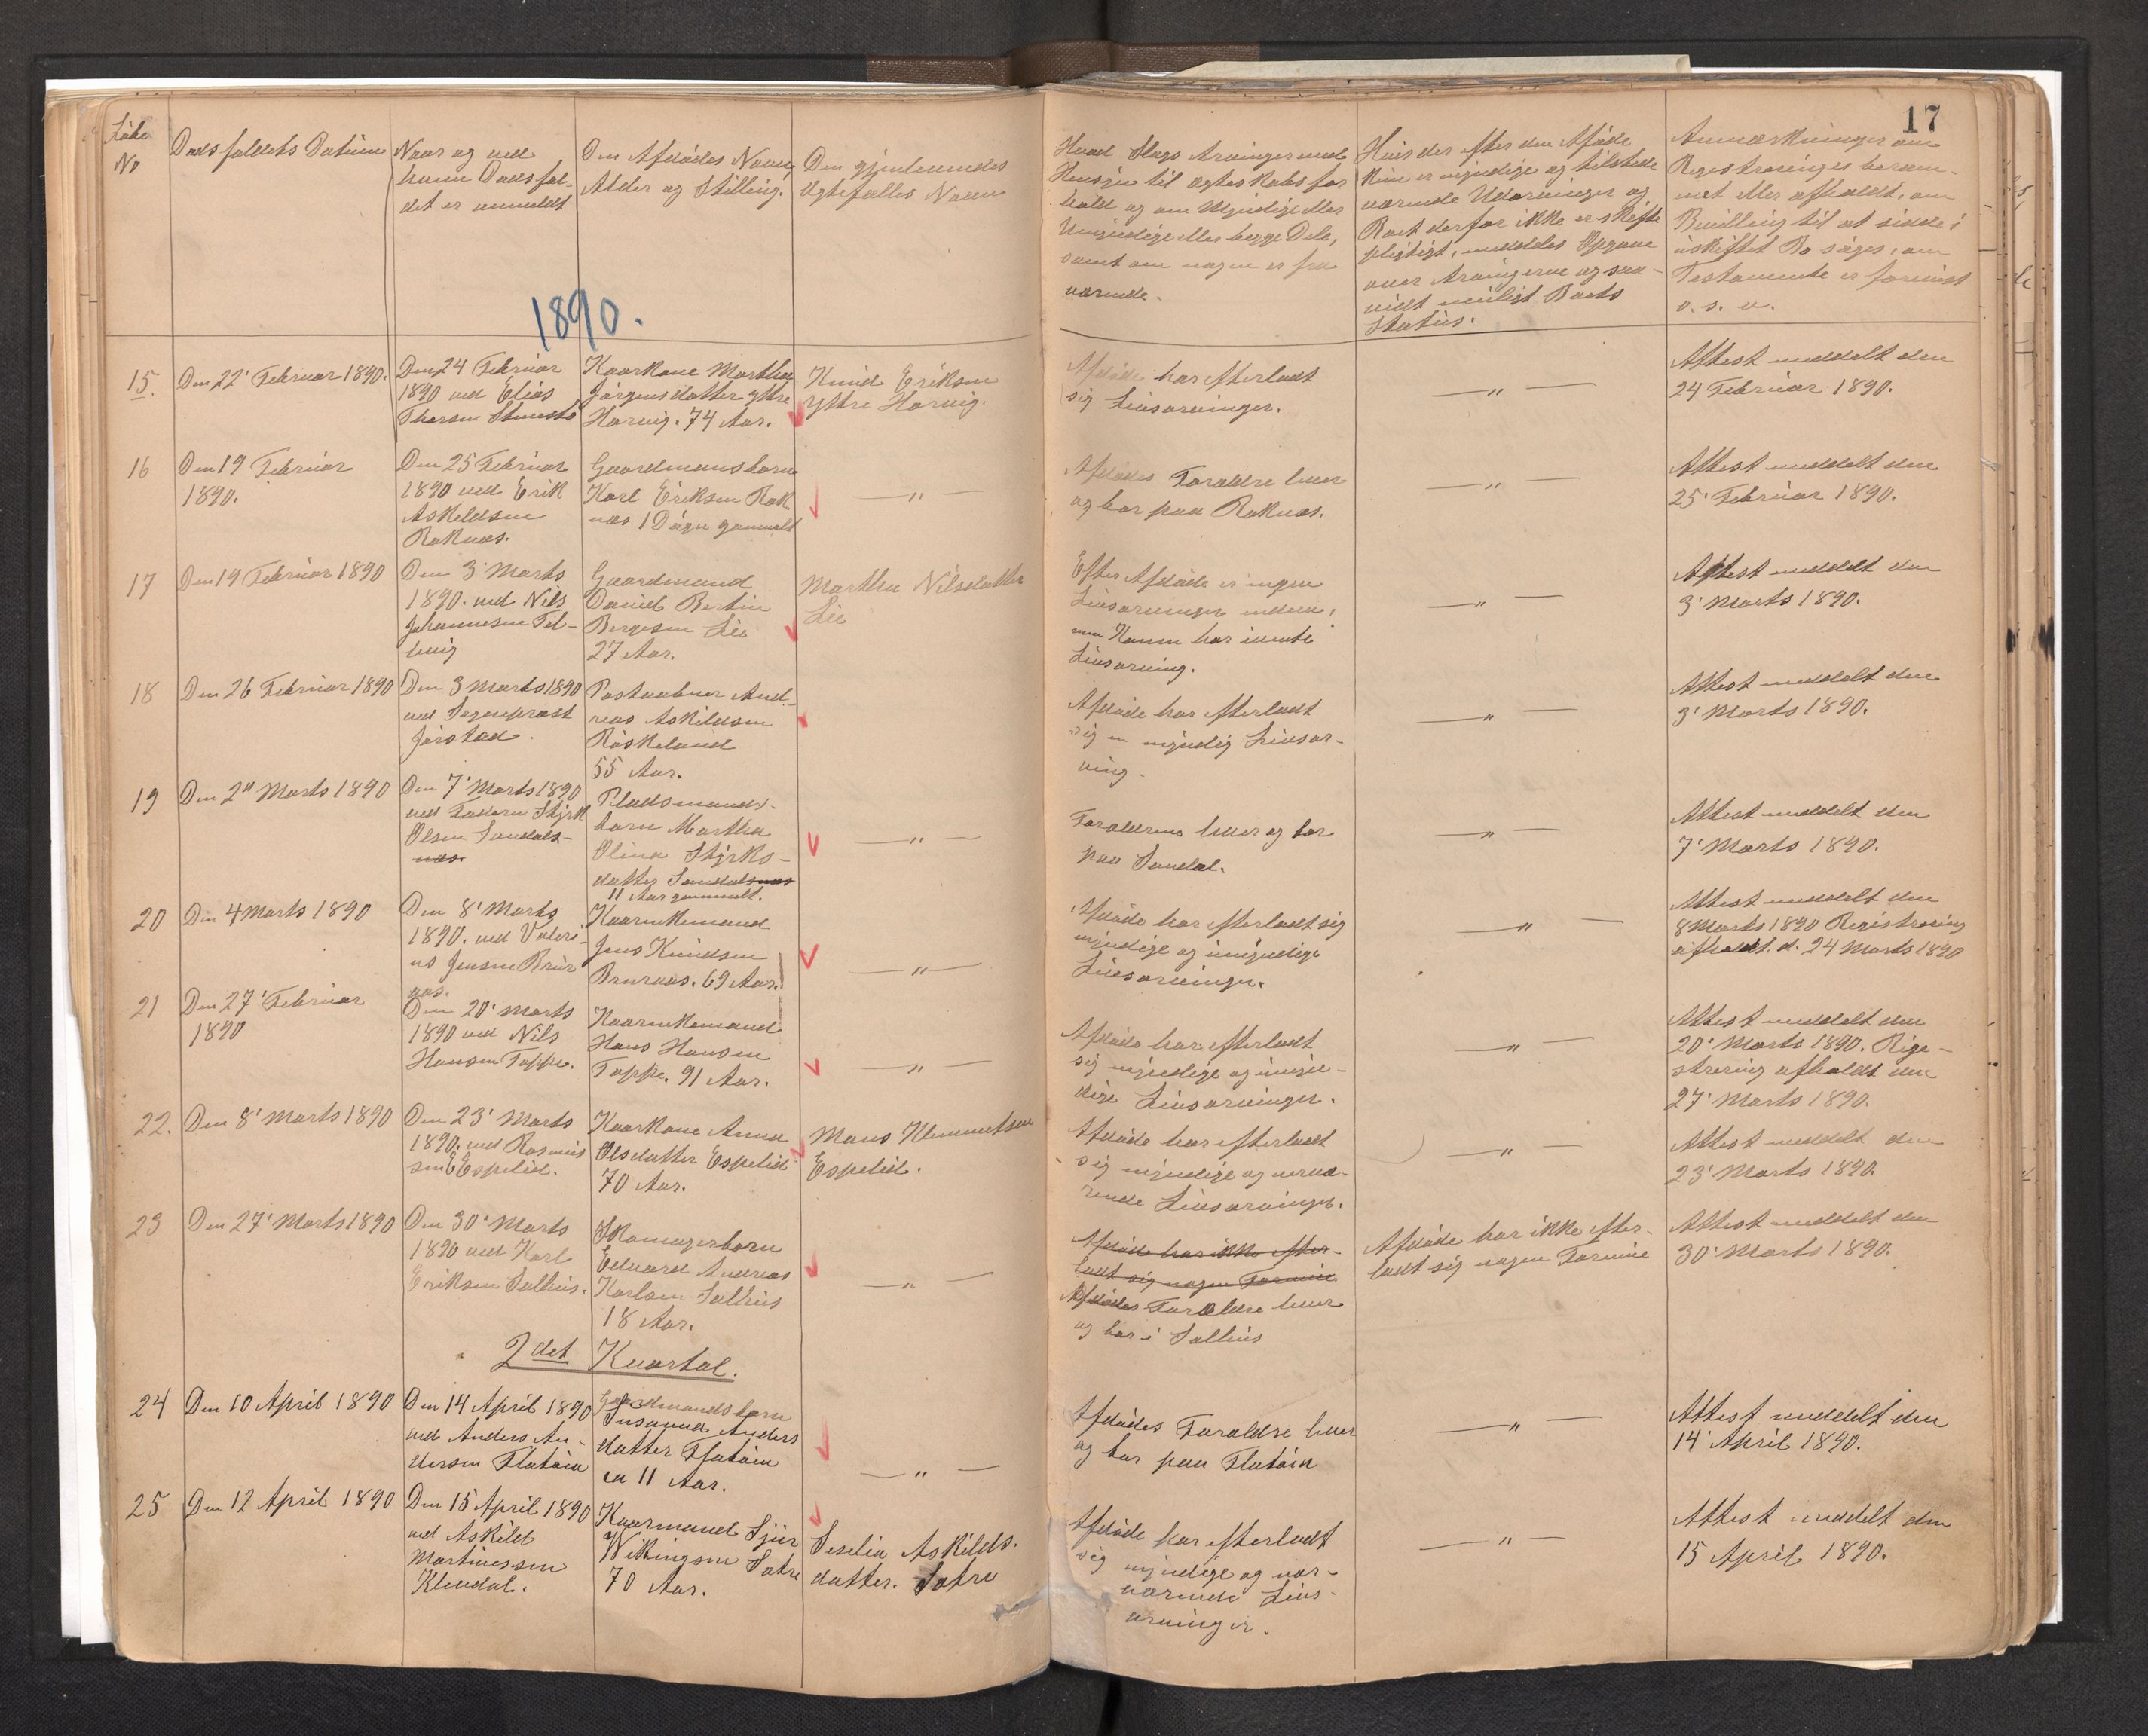 17
Løbe
No
Dødsfaldets Datum
Naar og ved
hvem Dødsfal-
det er anmeldt
Den Afdødes Navn,
Alder og Stilling.
Den gjenlevendes
Ægtefælles Navn
Hvad Slags Arvinger med
Hensyn til Ægteskabsfor
hold og om Myndige eller
Umyndige eller begge Dele,
samt om nogen er fra
værende.
Hvis der efter den Afdøde
kun er myndige og tilstede
værende Udarvinger og
Boet derfor ikke er skifte
pligtigt, meddeles Opgave
over Arvingerne og saa-
vidt muligt Boets
Status.
Anmærkninger om
Registreringen beram-
met eller afholdt, om
Bevilling til at sidde i
uskiftet Bo søges, om
Testamente er forevist
o. s. v.
1890.
15.
Den 22' Februar 1890.
Den 24 Februar
1890 ved Elias
Thorsen
Kaarkone Martha
Jørgensdatter Yttre
Horvig. 74 Aar.
Knud Eriksen
Yttre Horvig.
Afdøde har efterladt
sig Livsarvinger.
— " —
Attest meddelt den
24 Februar 1890.
16
Den 19 Februar
1890.
Den 25 Februar
1890 ved Erik
Askeldsen
Roknæs.
Gaardmansbarn
Karl Eriksen Rok
næs 1 Døgn gammelt
— " —
Afdødes Forældre lever
og bor paa Roknæs.
— " —
Attest meddelt den
25' Februar 1890.
17
Den 19 Februar 1890
Den 3' Marts
1890. ved Nils
Johannesen
Gaardmand
David Bertin
Bergesen Lie
27 Aar.
Martha Nilsdatter
Lie
Efter Afdøde er ingen
Livsarvinger endnu,
men Konen har ivente
Livsarving.
— " —
Attest meddelt den
3' Marts 1890.
18
Den 26 Februar 1890
Den 3 Marts 1890
ved Sogneprest
Jørstad.
Postaabner And-
reas Askildsen
Røskeland
55 Aar.
Afdøde har efterladt
sig en myndig Livsar-
ving.
— " —
Attest meddelt den
3' Marts 1890.
19
Den 2" Marts 1890
Den 7' Marts 1890
ved Faderen Styrk
Olsen Sandals-
næs.
Pladsmands-
barn Martha
Olina Styrks-
datter Sandalsnæs
11 Aar gammelt.
— " —
Forældrene lever og bor
paa Sandal.
— " —
Attest meddelt den
7' Marts 1890.
20
Den 4 Marts 1890
Den 8' Marts
1890. ved Valeri-
us Jensen Brur
aas.
Kaarenkemand
Jens Knudsen
Bruraas. 69 Aar.
— " —
Afdøde har efterladt sig
myndige og umyndige
Livsarvinger.
— " —
Attest meddelt den
8 Marts 1890 Registrering
afholdt. d. 24 Marts 1890
21
Den 27' Februar
1890
Den 20' Marts
1890 ved Nils
Hansen Toppe.
Kaarenkemand
Hans Hansen
Toppe. 91 Aar.
— " —
Afdøde har efterladt
sig myndige og umyn-
dige Livsarvinger.
— " —
Attest meddelt den
20' Marts 1890. Rige-
strering afholdt den
27' Marts 1890.
22.
Den 8' Marts 1890
Den 23' Marts
1890. ved Rasmus
Espelid.
Kaarkone Anna
Olsdatter Espelid
70 Aar.
Mons Klemmetsen
Espelid.
Afdøde har efterladt
sig myndige og nærvæ-
rende Livsarvinger.
— " —
Attest meddelt den
23' Marts 1890.
23
Den 27' Marts 1890
Den 30' Marts
1890 ved Karl
Eriksen Salhus.
Skomagerbarn
Edvard Andreas
Karlsen Salhus
18 Aar.
— " —
Afdøde har ikke efter-
ladt sig nogen Formue
Afdødes Forældre lever
og bor i Salhus
Afdøde har ikke efter-
ladt sig nogen Formue
Attest meddelt den
30' Marts 1890.
2det Kvartal.
24
Den 10 April 1890
Den 14 April 1890
ved Anders An-
dersen Flatøen
Gaardmandsbarn
Susanna Anders
datter Flatøen
11 Aar.
— " —
Afdødes Forældre lever
og bor paa Flatøen
— " —
Attest meddelt den
14' April 1890.
25
Den 12 April 1890
Den 15 April 1890
ved Askild
Martinessen
Klendal.
Kaarmand Sjur
Wikingsen Sætre
70 Aar.
Sesilia Askilds-
datter. Sætre
Afdøde har efterladt
sig myndige og nær-
værende Livs-
arvinger.
— " —
Attest meddelt den
15 April 1890.